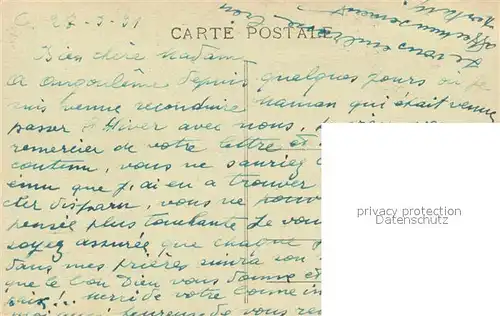 C. 27-3-31
CARTE POSTALE
Je vous embrasse
affectueusement
Bien chère Madame
A Angoulême depuis quelques jours où je
suis venue reconduire Maman qui était venue
passer l'Hiver avec nous, je
remercier de votre lettre et
contenu, vous ne sauriez
ému que j'ai eu a trouver
cher disparu, vous ne
pensée plus touchante Je vous
soyez assurée que chaque
dans mes prières suivra son
que le bon Dieu vous donne et
paix!.. merci de votre bonne
moi aussi heureuse de vous
privacy protection
Datenschutz